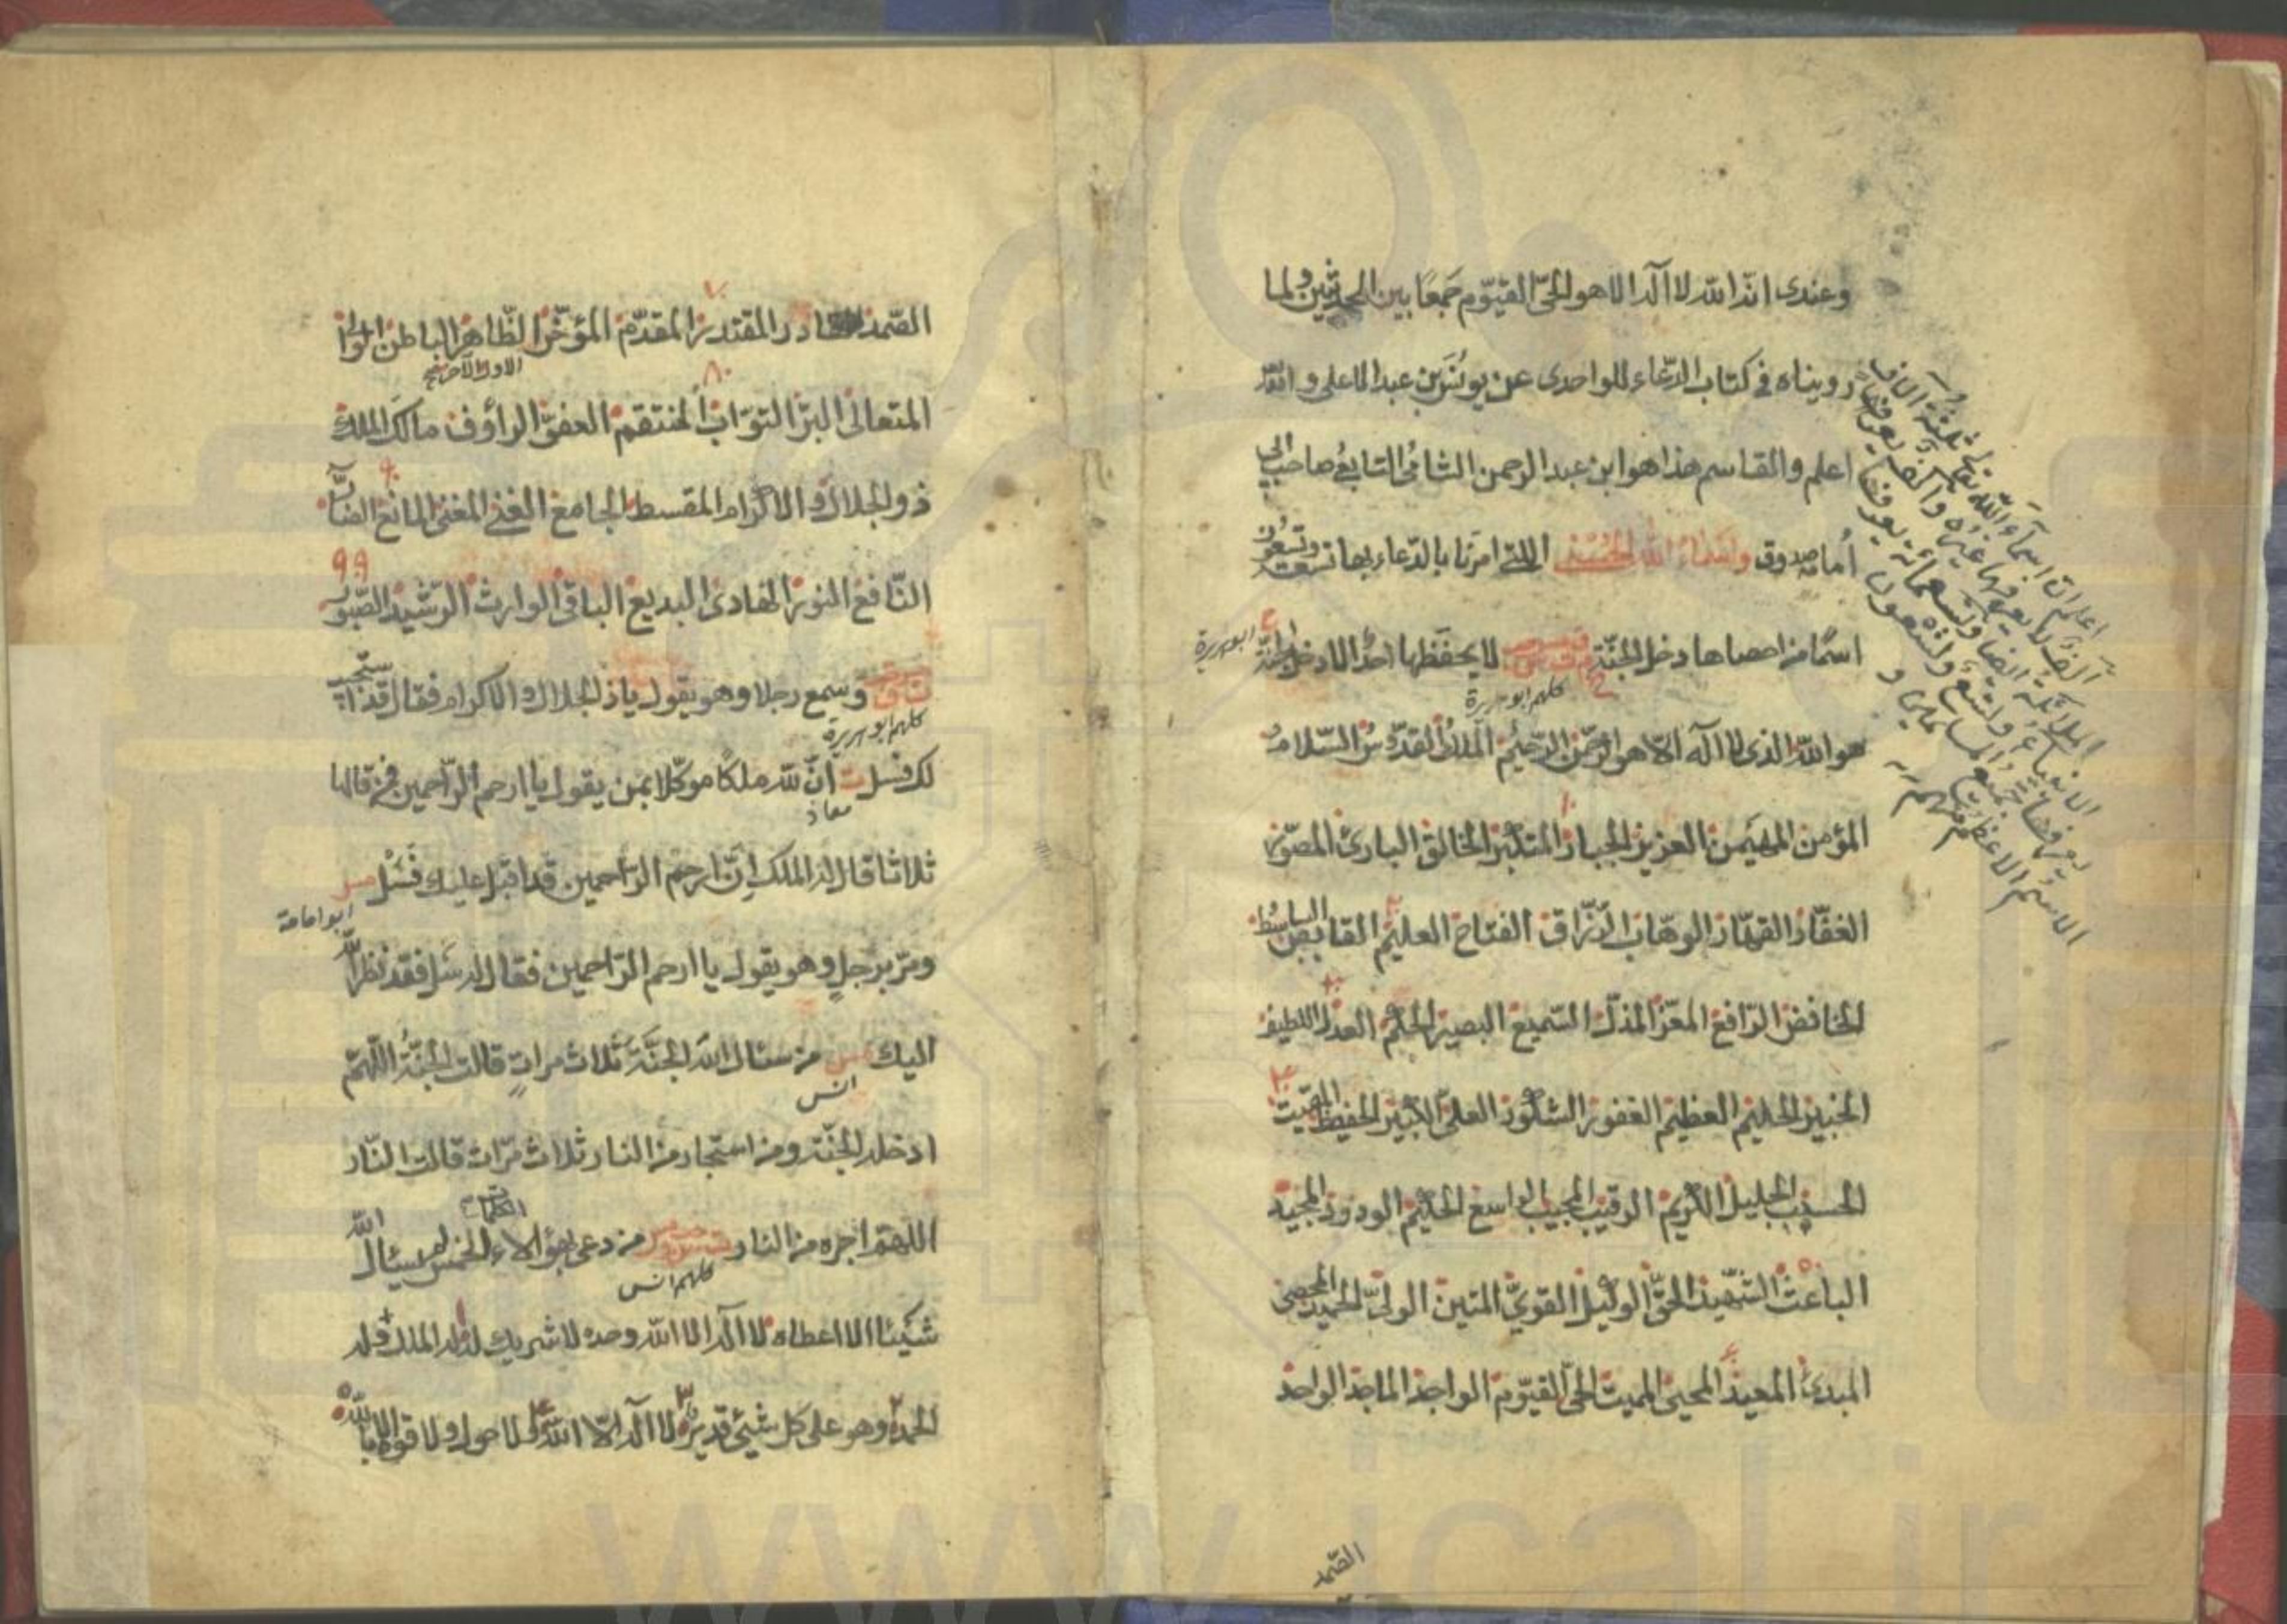 وعندى انّه الله لا اله الا هو الحىّ القيّوم جمعًا بين الحديثين ولما
رويناه فى كتاب الدّعاء للواحدى عن يونس بن عبد الاعلى و الله
اعلم والقاسم هذا هو ابن عبد الرحمن الشامى التابعى صاحب ابى
أمامه صدوق واسماء الله الحسنى التى امرنا بالدّعاء بها تسعة وتسعون
اسمًا من احصاها دخل الجنّة لا يحفظها احدٌ الا دخل الجنّة
ابو هريرة
كلهم ابو هريرة
هو الله الذى لا اله الّا هو الرّحمن الرّحيم الملك القدّوس السّلام
المؤمن المهيمن العزيز الجبار المتكبّر الخالق البارئ المصوّر
الغفّار القهّار الوهّاب الرّزّاق الفتاح العليم القابض الباسط
الخافض الرّافع المعزّ المذلّ السّميع البصير الحكم العدل اللطيف
الخبير الحليم العظيم الغفور الشكور العلىّ الكبير الحفيظ المقيت
الحسيب الجليل الكريم الرقيب المجيب الواسع الحكيم الودود المجيد
الباعث الشّهيد الحقّ الوكيل القوىّ المتين الولىّ الحميد المحصى
المبدئ المعيد المحيى المميت الحىّ القيّوم الواجد الماجد الواحد
الصّمد
اعلم ان اسماء الله تعالى ثلثة آلاف
الف لا يعرفها غيره والف يعرفها
الملائكة
الصّمد القادر المقتدر المقدّم المؤخّر الظّاهر الباطن الوالى
الاول الآخر صح
المتعالى البرّ التوّاب المنتقم العفوّ الرأوف مالك الملك
ذو الجلال والاكرام المقسط الجامع الغنى المغنى المانع الضّارّ
٩٩
النّافع النور الهادى البديع الباقى الوارث الرّشيد الصّبور
وسمع رجلا وهو يقول ياذ الجلال والاكرام فقال قد استجيب
كلهم ابو هريرة
لك فسل ت انّ لله ملكًا موكّلا بمن يقول يا ارحم الرّاحمين فمن قالها
معاذ
ثلاثا قال له الملك انّ ارحم الرّاحمين قد اقبل عليك فسَل مس
ابو امامة
ومرّ برجلٍ وهو يقول يا ارحم الرّاحمين فقال له سَل فقد نظر الله
اليك مس من سئال الله الجنّة ثلاث مراتٍ قالت الجنّةُ اللّهمّ
انس
ادخله الجنّة ومن استجار من النار ثلاث مرّات قالت النّار
اللهمّ اجره من النار من دعى بهؤلاء الكلمات الخمس لم يسئال الله
كلهم انس
شيئا الا اعطاه لا اله الا الله وحده لا شريك له له الملك وله
الحمد وهو على كل شيئ قدير لا اله الّا الله ولا حول ولا قوة الا بالله